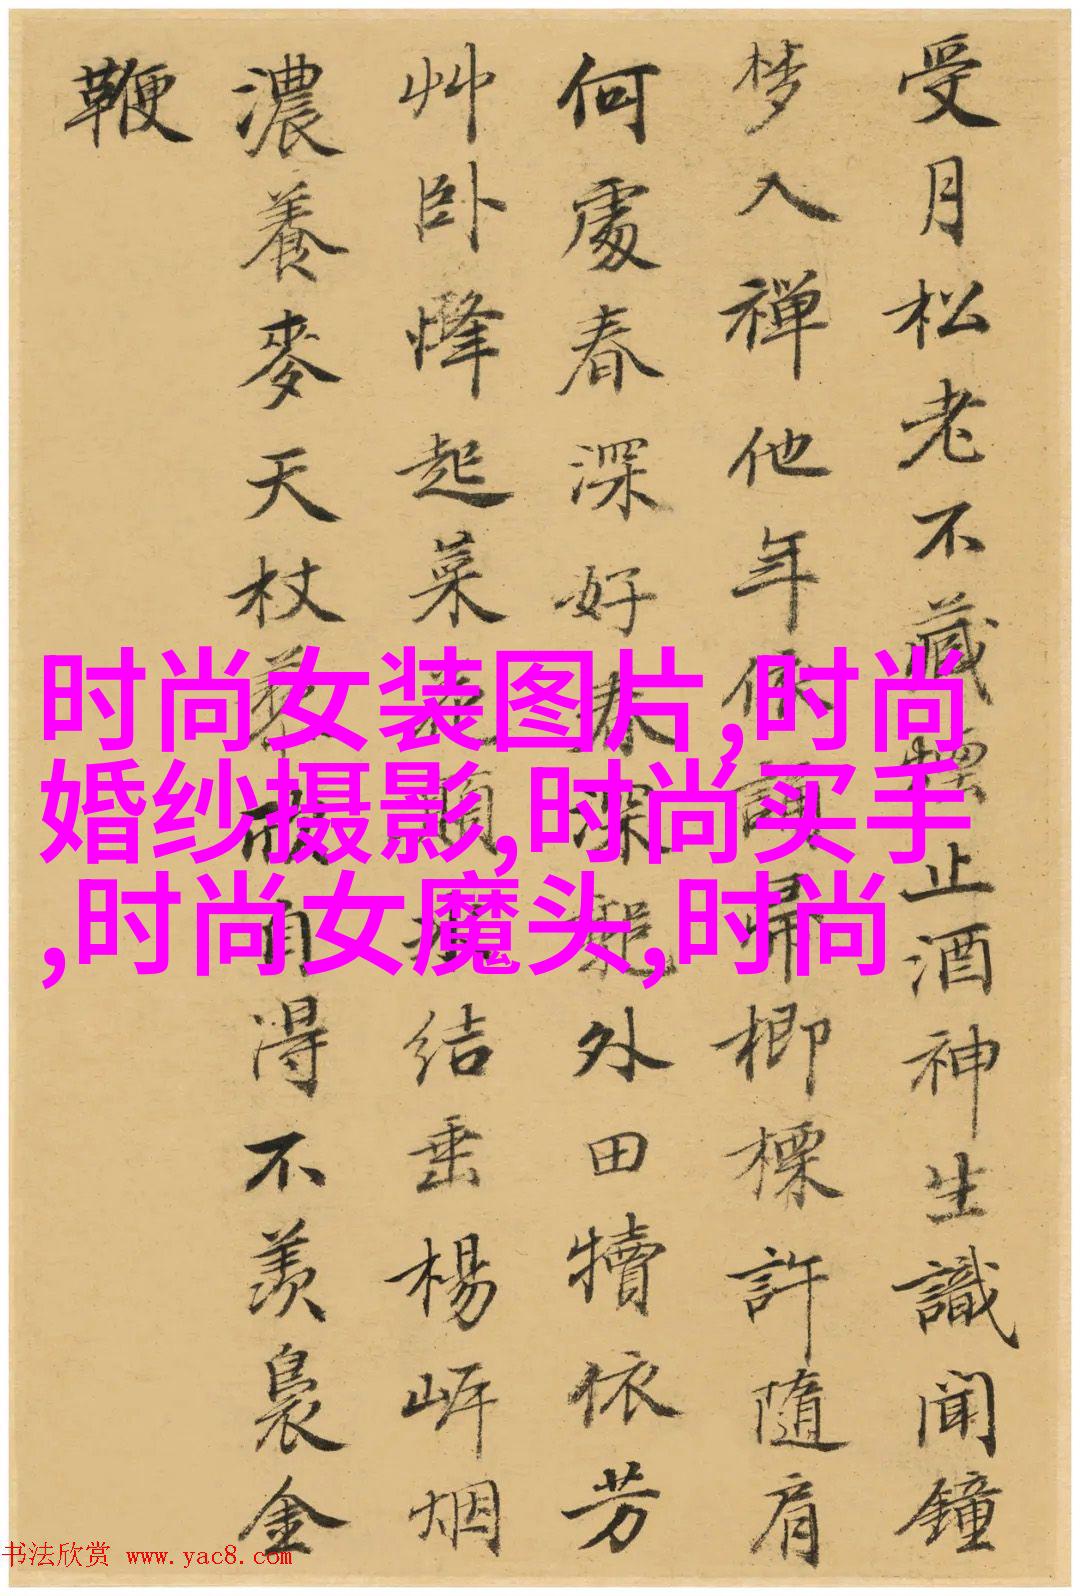 受月松老不藏止酒神生識聞鐘
梦入禅他年歸楖許隨肩
何處春深好春深外田犢依芳
艸卧起菜結垂楊岸烟
濃養麥天杖自得不羨裊金
鞭
时尚女装图片,时尚
婚纱摄影,时尚买手
,时尚女魔头,时尚
书法欣赏 www.yac8.com